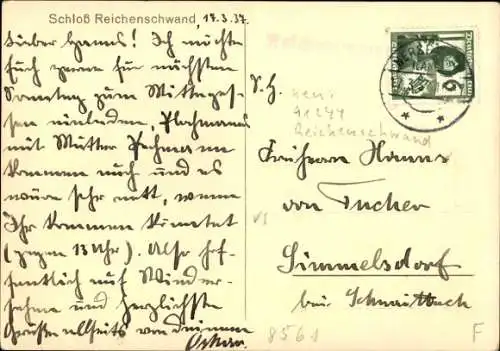 Schloß Reichenschwand, 17.3.37.
Lieber Hanns! Ich möchte
Euch gerne für nächsten
Sonntag zum Mittages-
sen einladen,
mit Mutter
kommen auch und es
wäre sehr nett, wenn
Ihr kommen könntet
(gegen 13 Uhr). Also hof-
fentlich auf Wieder-
sehen und herzlichste
Grüße allseits von Deinem
Oskar.
Deutsches Reich
6
S. H.
neu:
91244
Reichenschwand
Freiherrn Hanns
von Tucher
Simmelsdorf
bei Schnaittach
8561
F